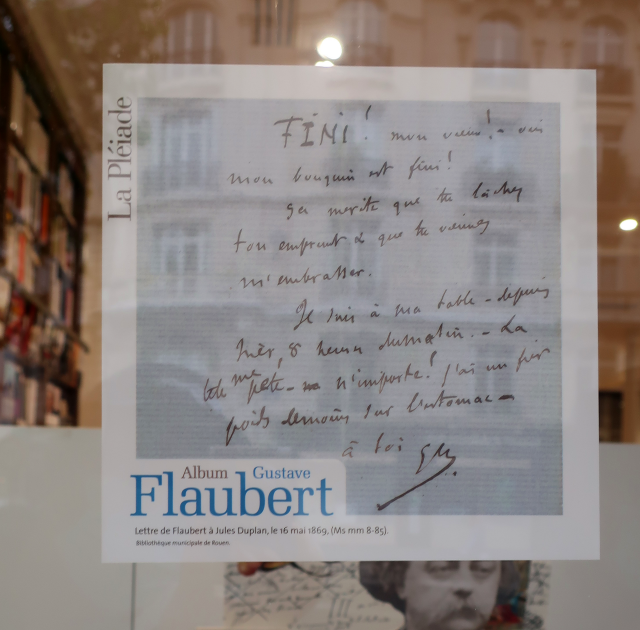 La Pléiade
FINI! mon vieux! - oui
mon bouquin est fini!
ça mérite que tu lâches
ton emprunt & que tu viennes
m'embrasser.
Je suis à ma table - depuis
hier, 8 heures du matin. - La
tête me pète - n'importe! j'ai un fier
poids de moins sur l'estomac -
à toi
Album Gustave
Flaubert
Lettre de Flaubert à Jules Duplan, le 16 mai 1869, (Ms mm 8-85).
Bibliothèque municipale de Rouen.